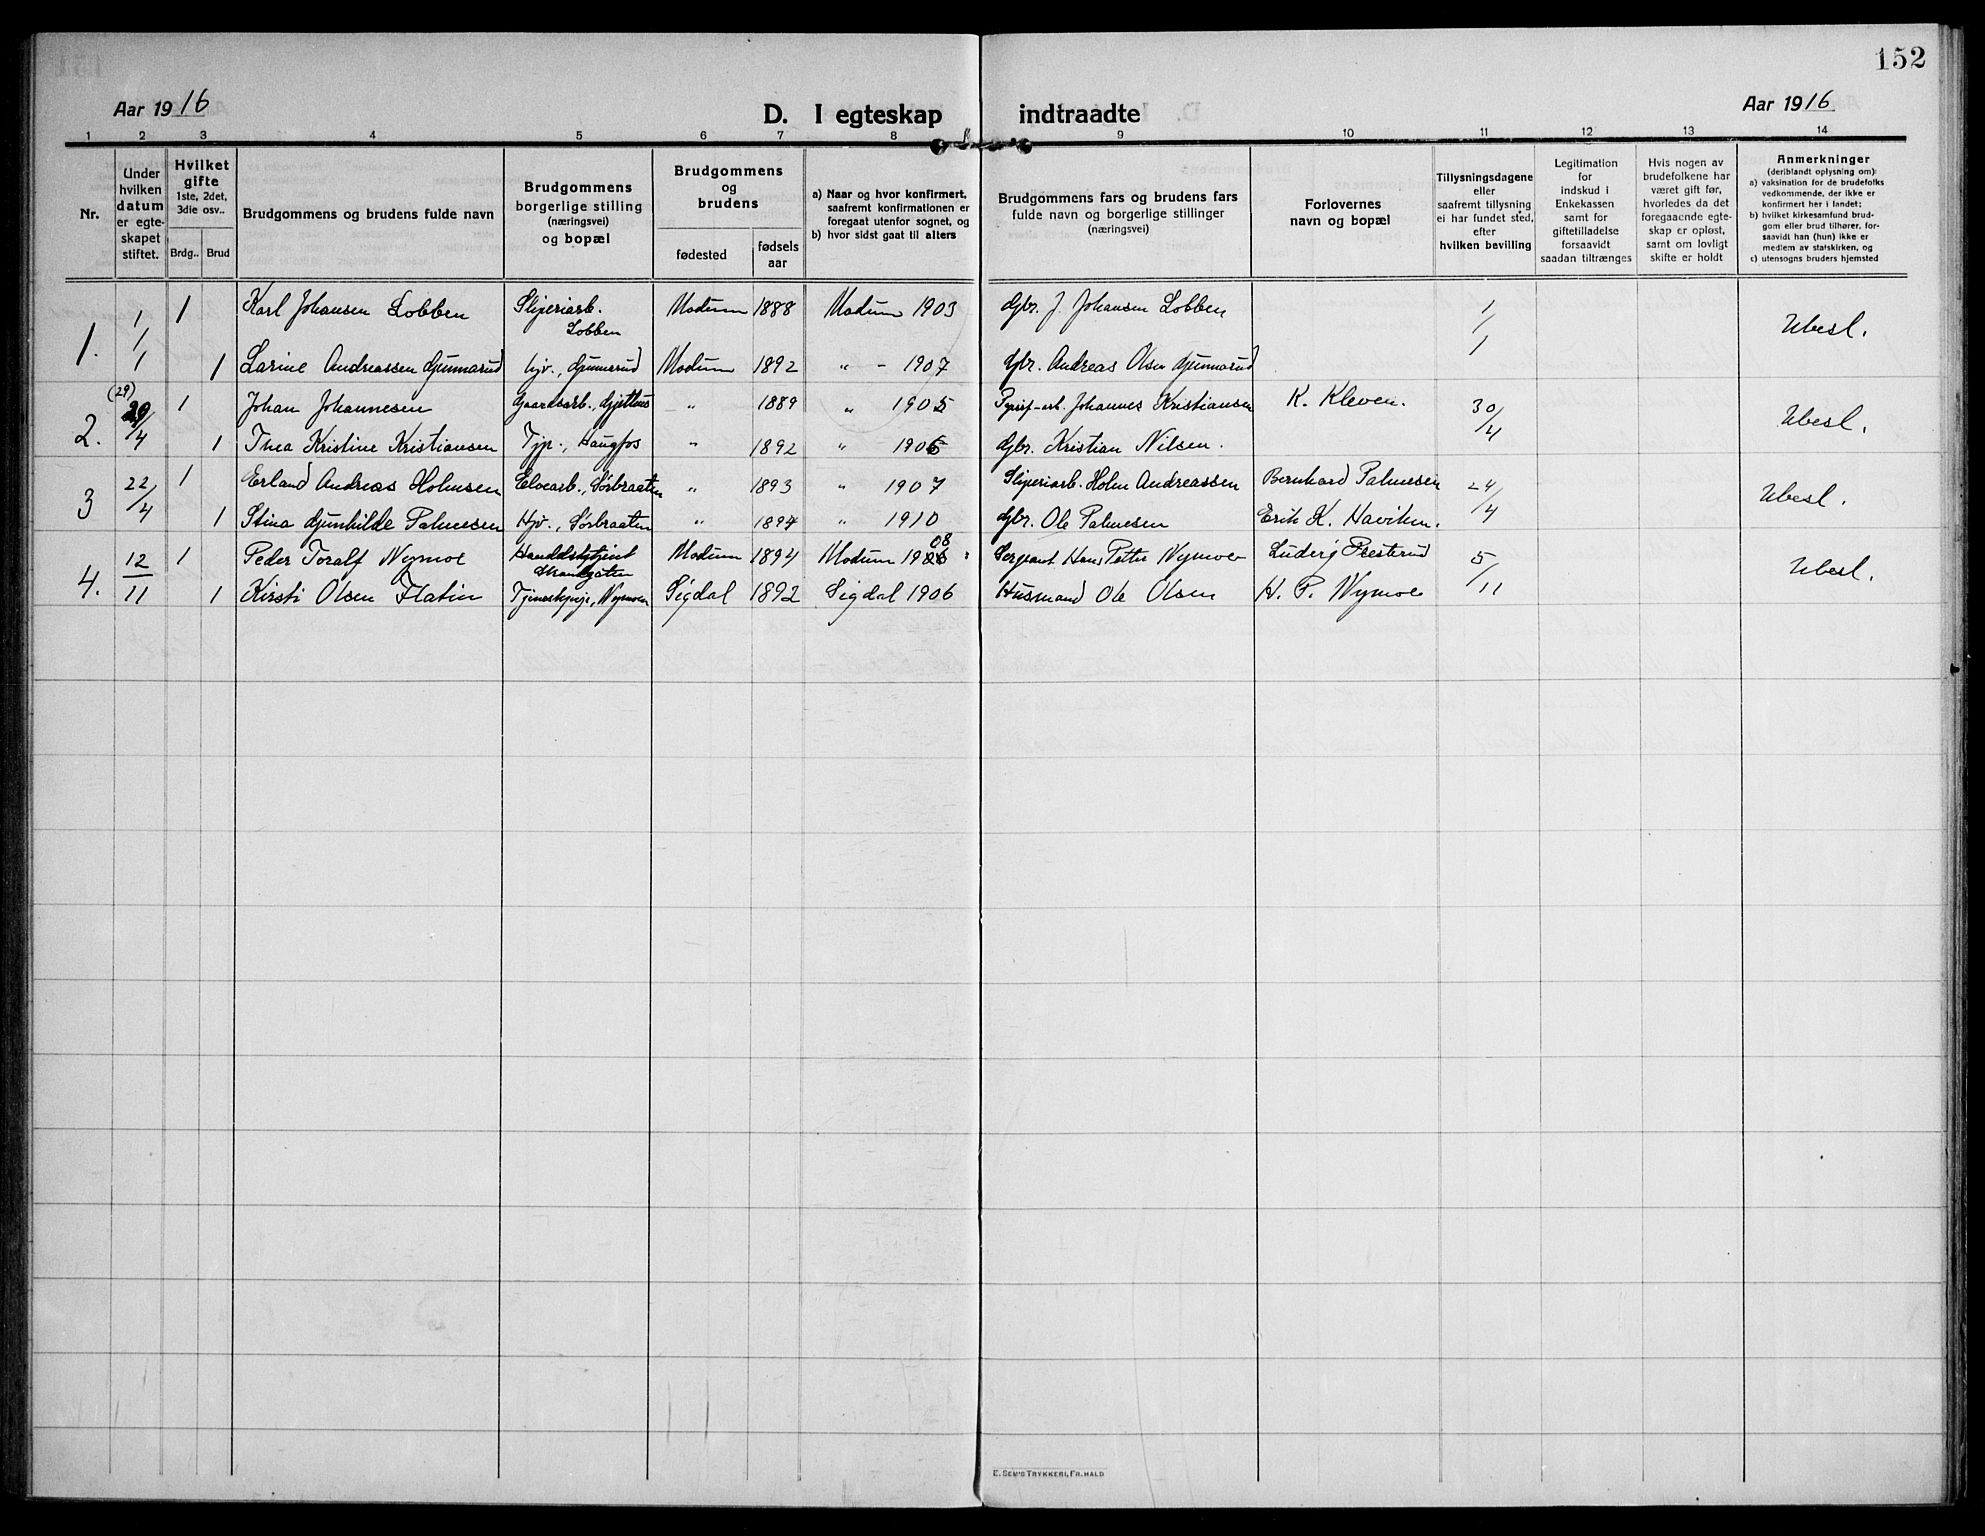 152
Aar 1916
D. I egteskap indtraadte
Aar 1916
1 2 3 4 5 6 7 8 9 10 11 12 13 14
Nr.
Under hvilken datum er egte-skapet stiftet.
Hvilket gifte 1ste, 2det, 3die osv..
Brdg.. Brud
Brudgommens og brudens fulde navn
Brudgommens borgerlige stilling (næringsvei) og bopæl
Brudgommens og brudens
fødested
fødsels aar
a) Naar og hvor konfirmert, saafremt konfirmationen er foregaat utenfor sognet, og
b) hvor sidst gaat til alters
Brudgommens fars og brudens fars fulde navn og borgerlige stillinger (næringsvei)
Forlovernes navn og bopæl
Tillysningsdagene eller saafremt tillysning ei har fundet sted, efter hvilken bevilling
Legitimation for indskud i Enkekassen samt for giftetilladelse forsaavidt saadan tiltrænges
Hvis nogen av brudefolkene har været gift før, hvorledes da det foregaaende egte-skap er opløst, samt om lovligt skifte er holdt
Anmerkninger (deriblandt oplysning om):
a) vaksination for de brudefolks vedkommende, der ikke er konfirmert her i landet;
b) hvilket kirkesamfund brud-gom eller brud tilhører, for-saavidt han (hun) ikke er medlem av statskirken, og
c) utensogns bruders hjemsted
1. 1/1 1 Karl Johansen Lobben Sliperiarb. Lobben Modum 1888 Modum 1903 Gbr. J. Johansen Lobben 1/1 Ubesl.
1 Larine Andreassen Gunnarud Hjv., Gunnerud Modum 1892 „ - 1907 Gbr. Andreas Olsen Gunnarud
2. (29) 29/4 1 Johan Johannesen Gaardsarb., Gjethus „ 1889 „ 1905 Johannes Kristiansen K. Kleven. 30/4 Ubesl.
1 Thea Kristine Kristiansen Tjp., Haugfos „ 1892 „ 1906 Gbr. Kristian Nilsen.
3 22/4 1 Erland Andreas Holmsen Elvearb., Sørbraaten „ 1893 „ 1907 Sliperiarb. Holm Andreassen Bernhard Palmesen 24/4 Ubesl.
1 Stina Gunhilde Palmesen Hjv., Sørbraaten „ 1894 „ 1910 Gbr. Ole Palmesen Erik K. Haviken.
4. 12/11 1 Peder Toralf Nymoe Strandgaten Modum 1894 Modum 1908 Sergeant Hans Petter Nymoe Ludvig Presterud 5/11 Ubesl.
1 Kirsti Olsen Flatin Tjenestepige, Nymoen Sigdal 1892 Sigdal 1906 Husmand Ole Olsen H. P. Nymoe
E. SEM'S TRYKKERI, FR. HALD